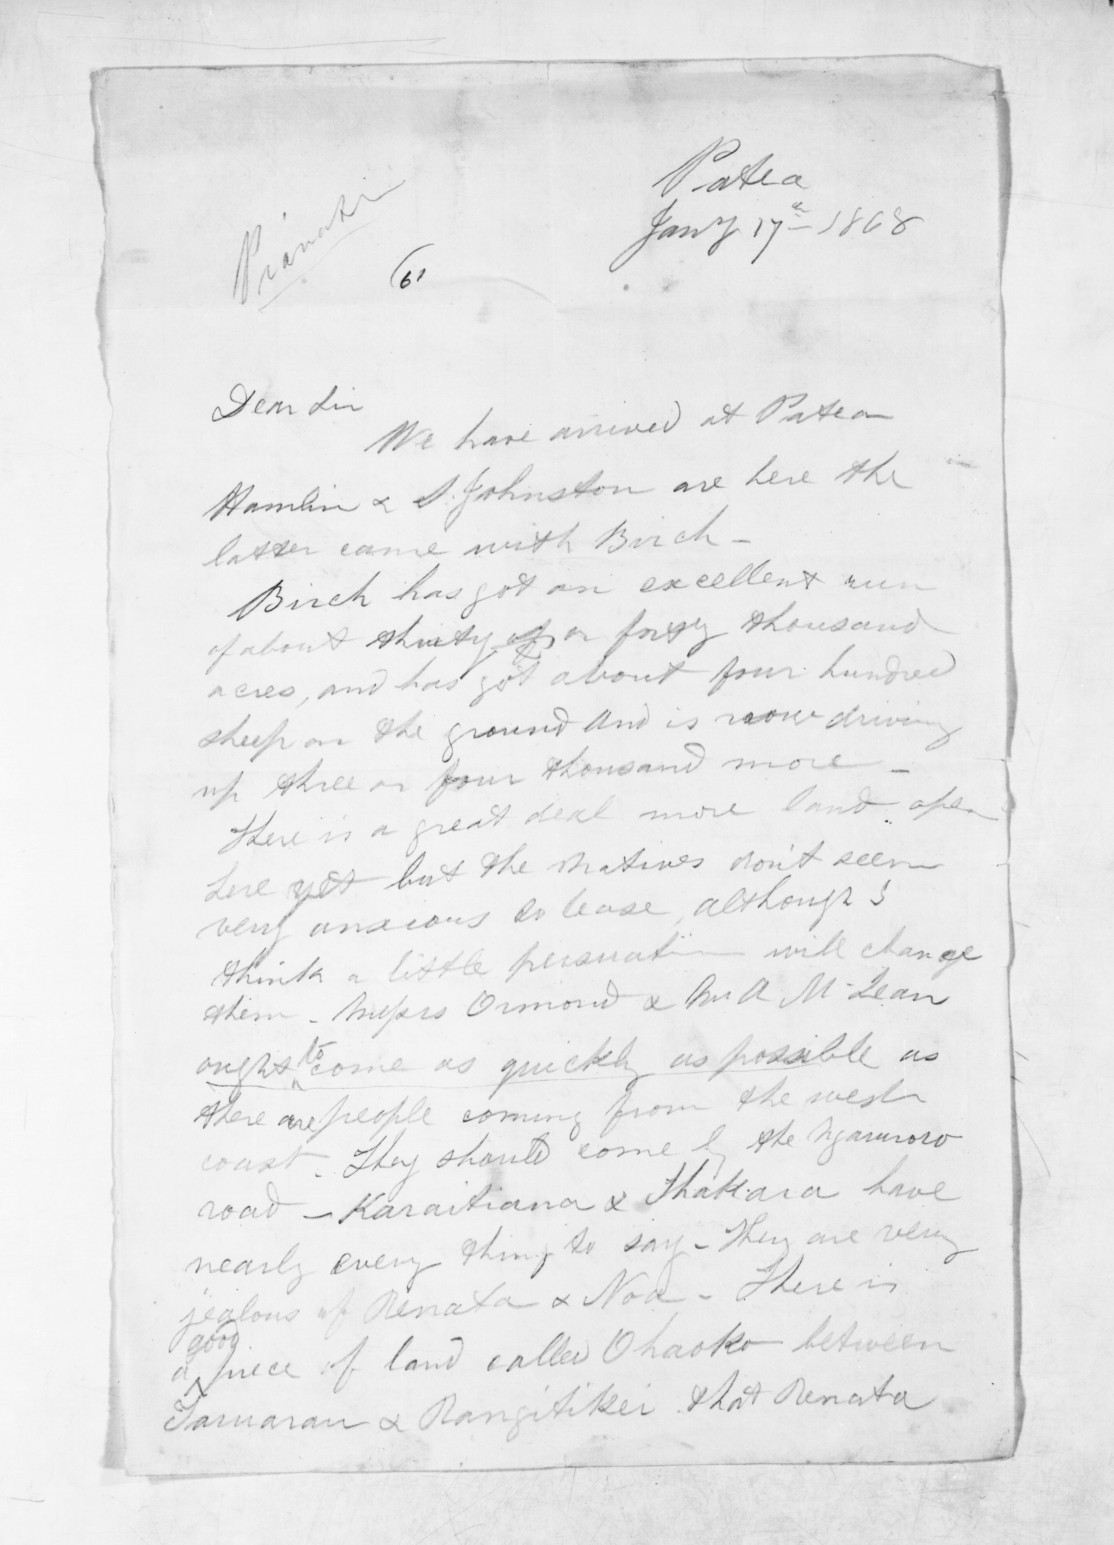 Patea
Jany 17th 1868
Private
(6)
Dear Sir
We have arrived at Patea
Hamlin & S. Johnston are here the
latter came with Birch -
Birch has got an excellent run
of about thirty or forty thousand
acres, and has got about four hundred
sheep on the ground and is now driving
up three or four thousand more -
There is a great deal more land open
here yet but the natives don't seem
very anxious to lease, although I
think a little persuation will change
them - Messrs Ormond & Mr A McLean
ought to come as quickly as possible as
there are people coming from the west
coast. They should come by the Ngaruroro
road - Karaitiana & Ihakara have
nearly every thing to say - They are very
jealous of Renata & Noa - There is
a good piece of land called Ohaoko between
Taruarau & Rangitikei that Renata